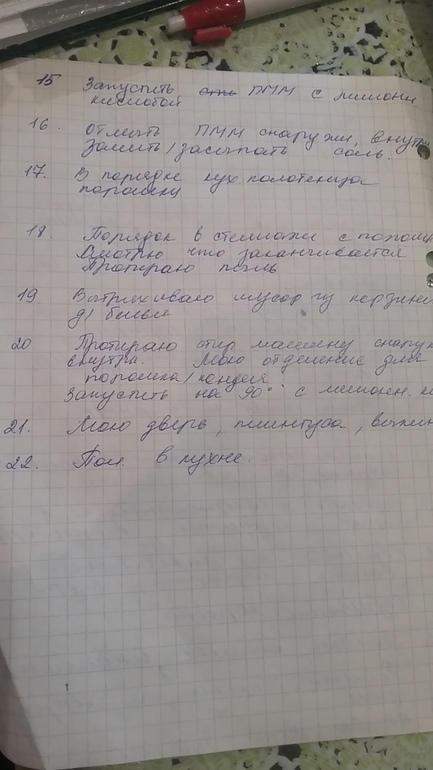 15 Запустить ПММ с лимонн
кислотой
16. Отмыть ПММ снаружи, внутри
Залить/засыпать соль.
17. В порядке кух. полотенца
порошки
18 Порядок в стеллажи с полом
Смотрю что заканчивается
Протираю пыль
19 Вытряхиваю мусор из корзин
д/ белья
20 Протираю стир машину снаруж
внутри. Мою отделение для
порошка/кондея
Запустить на 90° с лимонн. к
21. Мою дверь, плинтуса,
22. Пол в кухне.